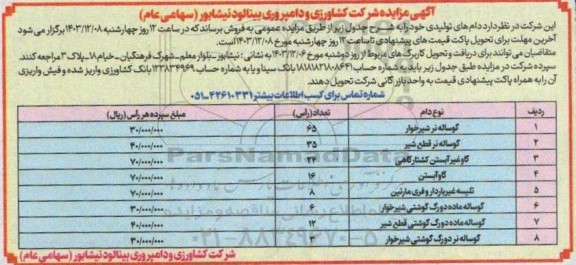 آگهی مزایده شرکت کشاورزی و دامپروری بینالود نیشابور (سهامی عام)
این شرکت در نظر دارد دام های تولیدی خود را به شرح جدول زیر از طریق مزایده عمومی به فروش برساند که در ساعت ۱۲ روز چهارشنبه ۱۴۰۳/۱۲/۰۸ برگزار می شود
آخرین مهلت برای تحویل پاکت قیمت های پیشنهادی تا ساعت ۱۲ روز چهارشنبه مورخ ۱۴۰۳/۱۲/۰۸ است.
متقاضیان می توانند برای دریافت و تحویل کاربرگ های مربوط از روز دوشنبه مورخ ۱۴۰۳/۱۲/۰۶ به نشانی: نیشابور - بلوار معلم - شهرک فرهنگیان - خیام ۱۸ - پلاک ۳ مراجعه کنند.
سپرده شرکت در مزایده طبق جدول زیر باید به شماره حساب بانک سینا و یا به شماره حساب بانک کشاورزی واریز شده و فیش واریزی
آن را به همراه پاکت پیشنهادی قیمت به واحد بازرگانی شرکت تحویل دهند.
شماره تماس برای کسب اطلاعات بیشتر: ۴۲۶۱۰۳۳۱-۰۵۱
ردیف نوع دام تعداد (رأس) مبلغ سپرده هر رأس (ریال)
۱ گوساله نر شیرخوار ۶۵ ۳۰/۰۰۰/۰۰۰
۲ گوساله نر قطع شیر ۳۵ ۳۰/۰۰۰/۰۰۰
۳ گاو غیر آبستن کشتارگاهی ۲۴ ۷۰/۰۰۰/۰۰۰
۴ گاو آبستن ۱۶ ۷۰/۰۰۰/۰۰۰
۵ تلیسه غیر باردار و فری مارتین ۸ ۷۰/۰۰۰/۰۰۰
۶ گوساله ماده دورگ گوشتی شیرخوار ۶ ۳۰/۰۰۰/۰۰۰
۷ گوساله ماده دورگ گوشتی قطع شیر ۱۲ ۴۰/۰۰۰/۰۰۰
۸ گوساله نر دورگ گوشتی شیرخوار ۳۰/۰۰۰/۰۰۰
شرکت کشاورزی و دامپروری بینالود نیشابور (سهامی عام)
ParsNamadData
۰۲۱-۸۸۳۴۹۶۷۰-۵